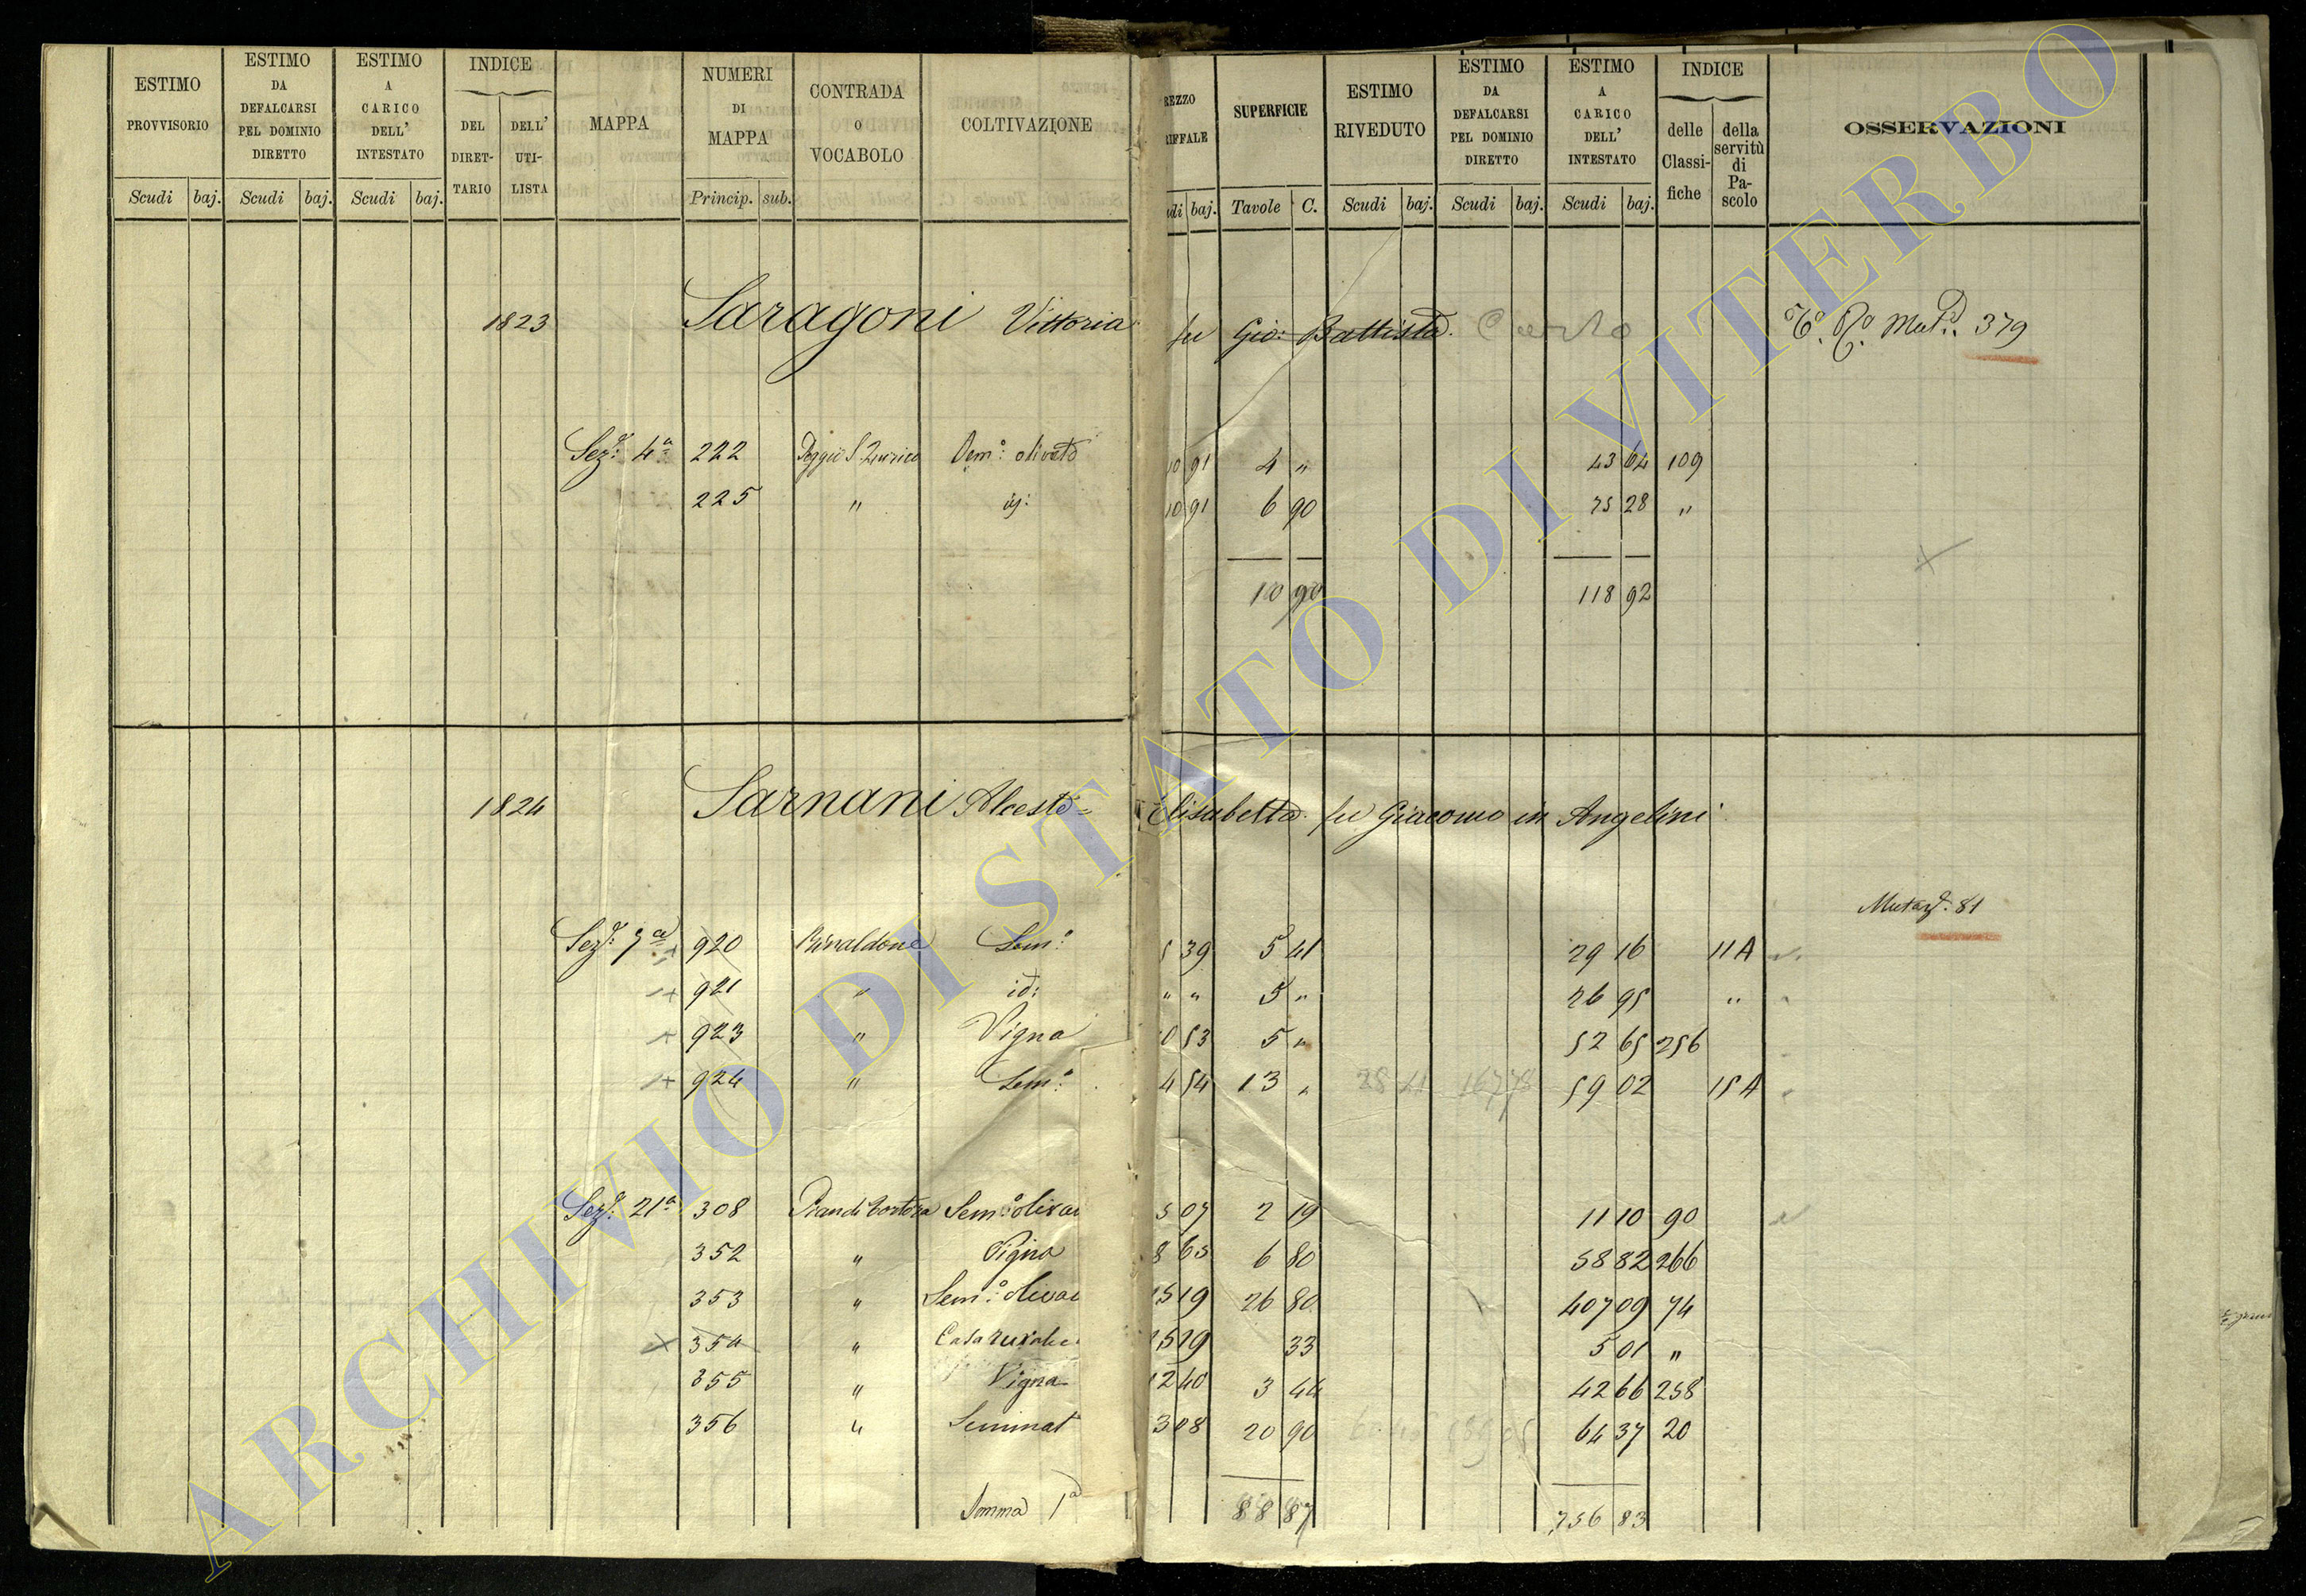 ESTIMO PROVVISORIO
ESTIMO DA DEFALCARSI PEL DOMINIO DIRETTO
ESTIMO A CARICO DELL' INTESTATO
INDICE
DEL DIRETTARIO
DELL' UTILISTA
MAPPA
NUMERI DI MAPPA
CONTRADA O VOCABOLO
COLTIVAZIONE
Scudi baj. Scudi baj. Scudi baj. Princip. sub.
REZZO RIFFALE
SUPERFICIE
ESTIMO RIVEDUTO
ESTIMO DA DEFALCARSI PEL DOMINIO DIRETTO
ESTIMO A CARICO DELL' INTESTATO
INDICE
delle Classifiche
della servitù di Pascolo
OSSERVAZIONI
udi baj. Tavole C. Scudi baj. Scudi baj. Scudi baj.
1823 Saragoni Vittoria fu Gio: Battista. Carlo 379
Sez: 4a 222 Oem: olivato 10 91 4 " 43 64 109
225 " id: 10 91 6 90 75 28 "
10 90 118 92
1824 Sarnani Alceste= Elisabetta fu Giacomo in Angelini
Mutaz: 81
Sez: 7a 920 Rinaldone Sem:o 5 39 5 41 29 16 11 A
921 " id: " " 5 " 26 95 "
923 " Vigna 10 53 5 " 52 65 256
924 " Sem:o 4 54 13 " 59 02 15 A
Sez: 21a 308 Sem:o olivat 5 07 2 19 11 10 90
352 " Vigna 8 65 6 80 58 82 266
353 " Sem:o olivat 15 19 26 80 407 09 74
354 " Casa rurale 15 19 33 5 01 "
355 " Vigna 12 40 3 44 42 66 258
356 " Seminat 3 08 20 90 64 37 20
Somma 1a 88 87 756 83
ARCHIVIO DI STATO DI VITERBO